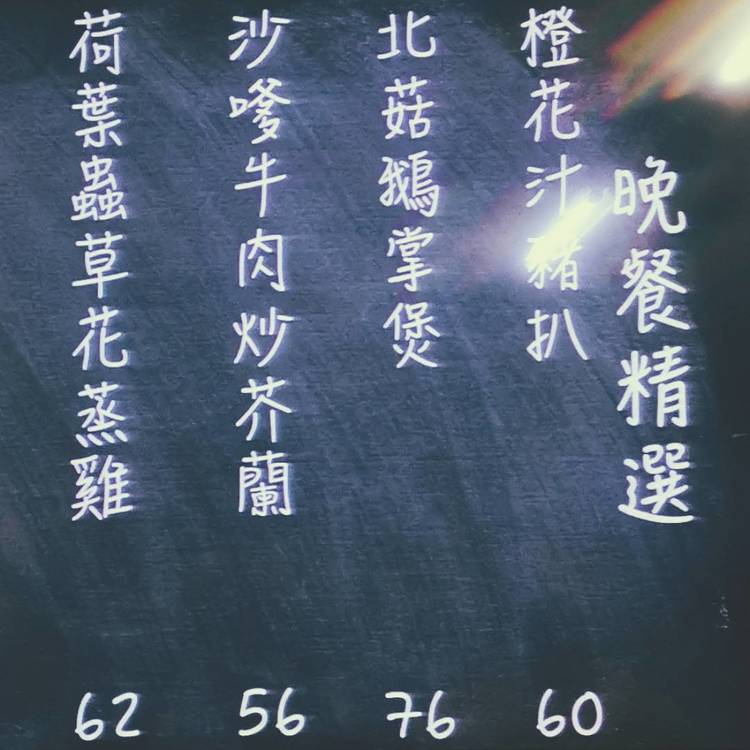 晚餐精選
橙花汁豬扒
60
北菇鵝掌煲
76
沙嗲牛肉炒芥蘭
56
荷葉蟲草花蒸雞
62